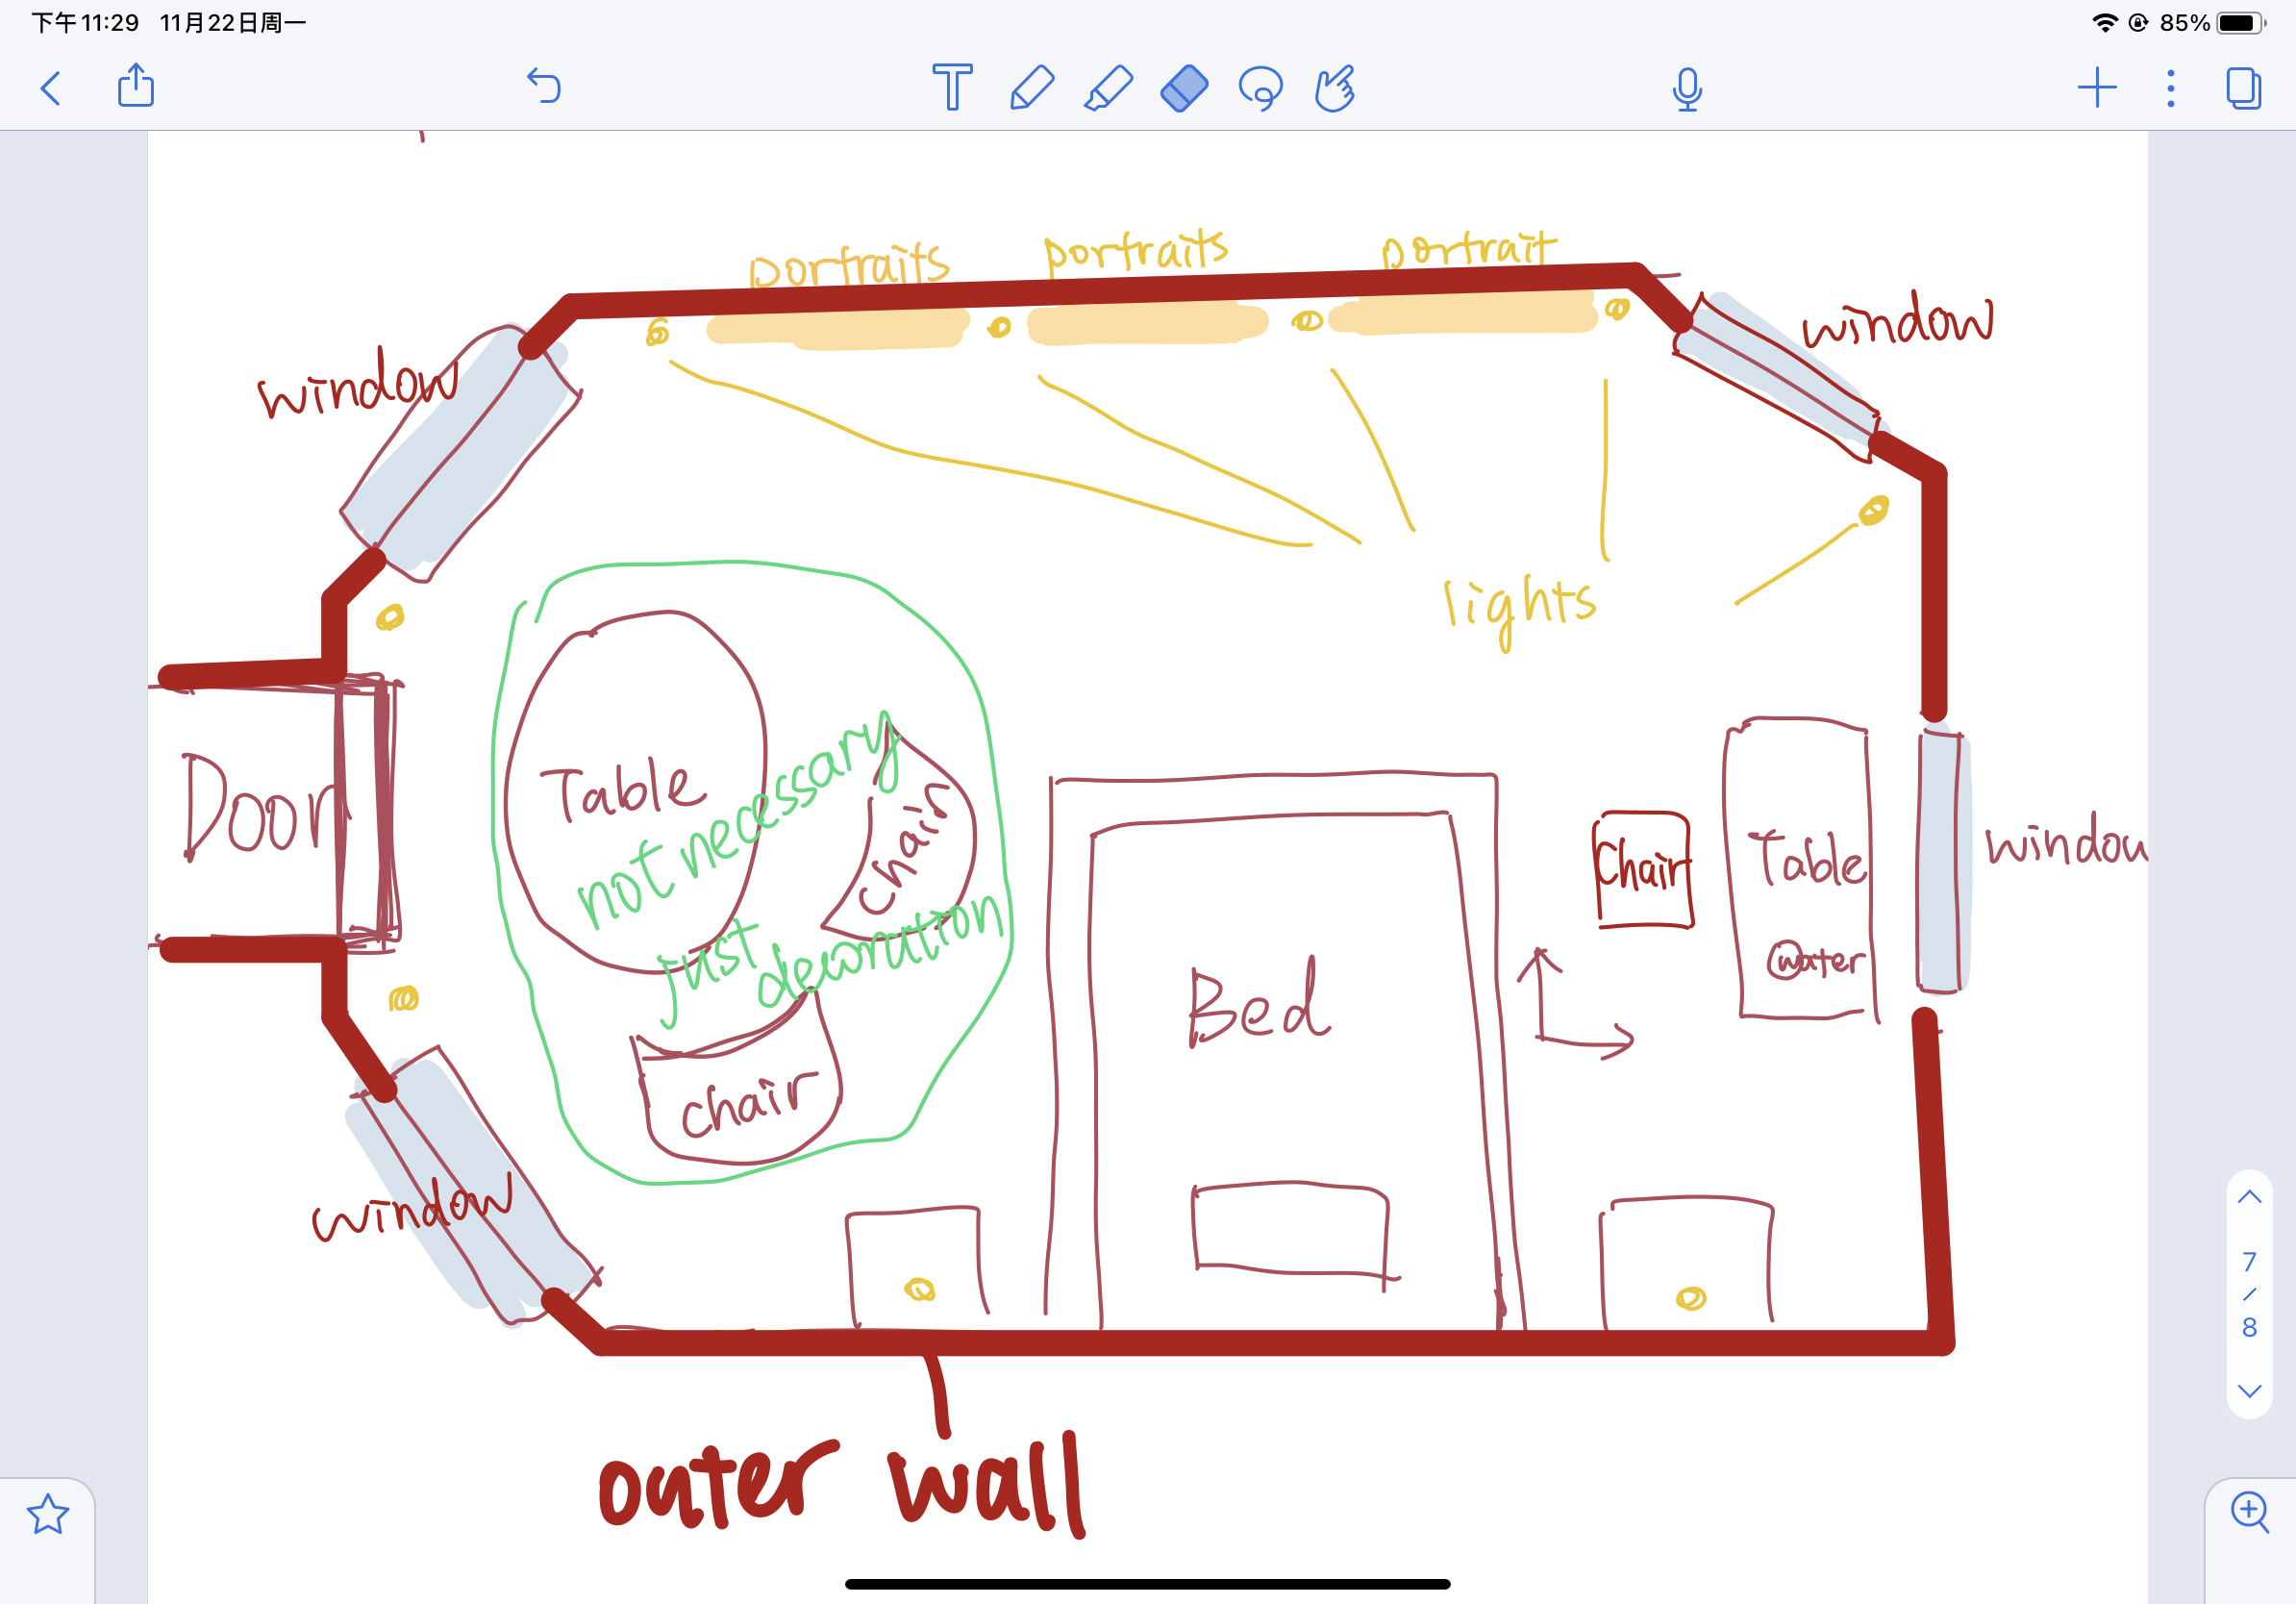 下午11:29 11月22日周一
85%
portraits portraits portrait
window
window
lights
Door
Table
not necessary
chair
just decoration
chair
Bed
chair
Table
window
window
7
8
outer wall